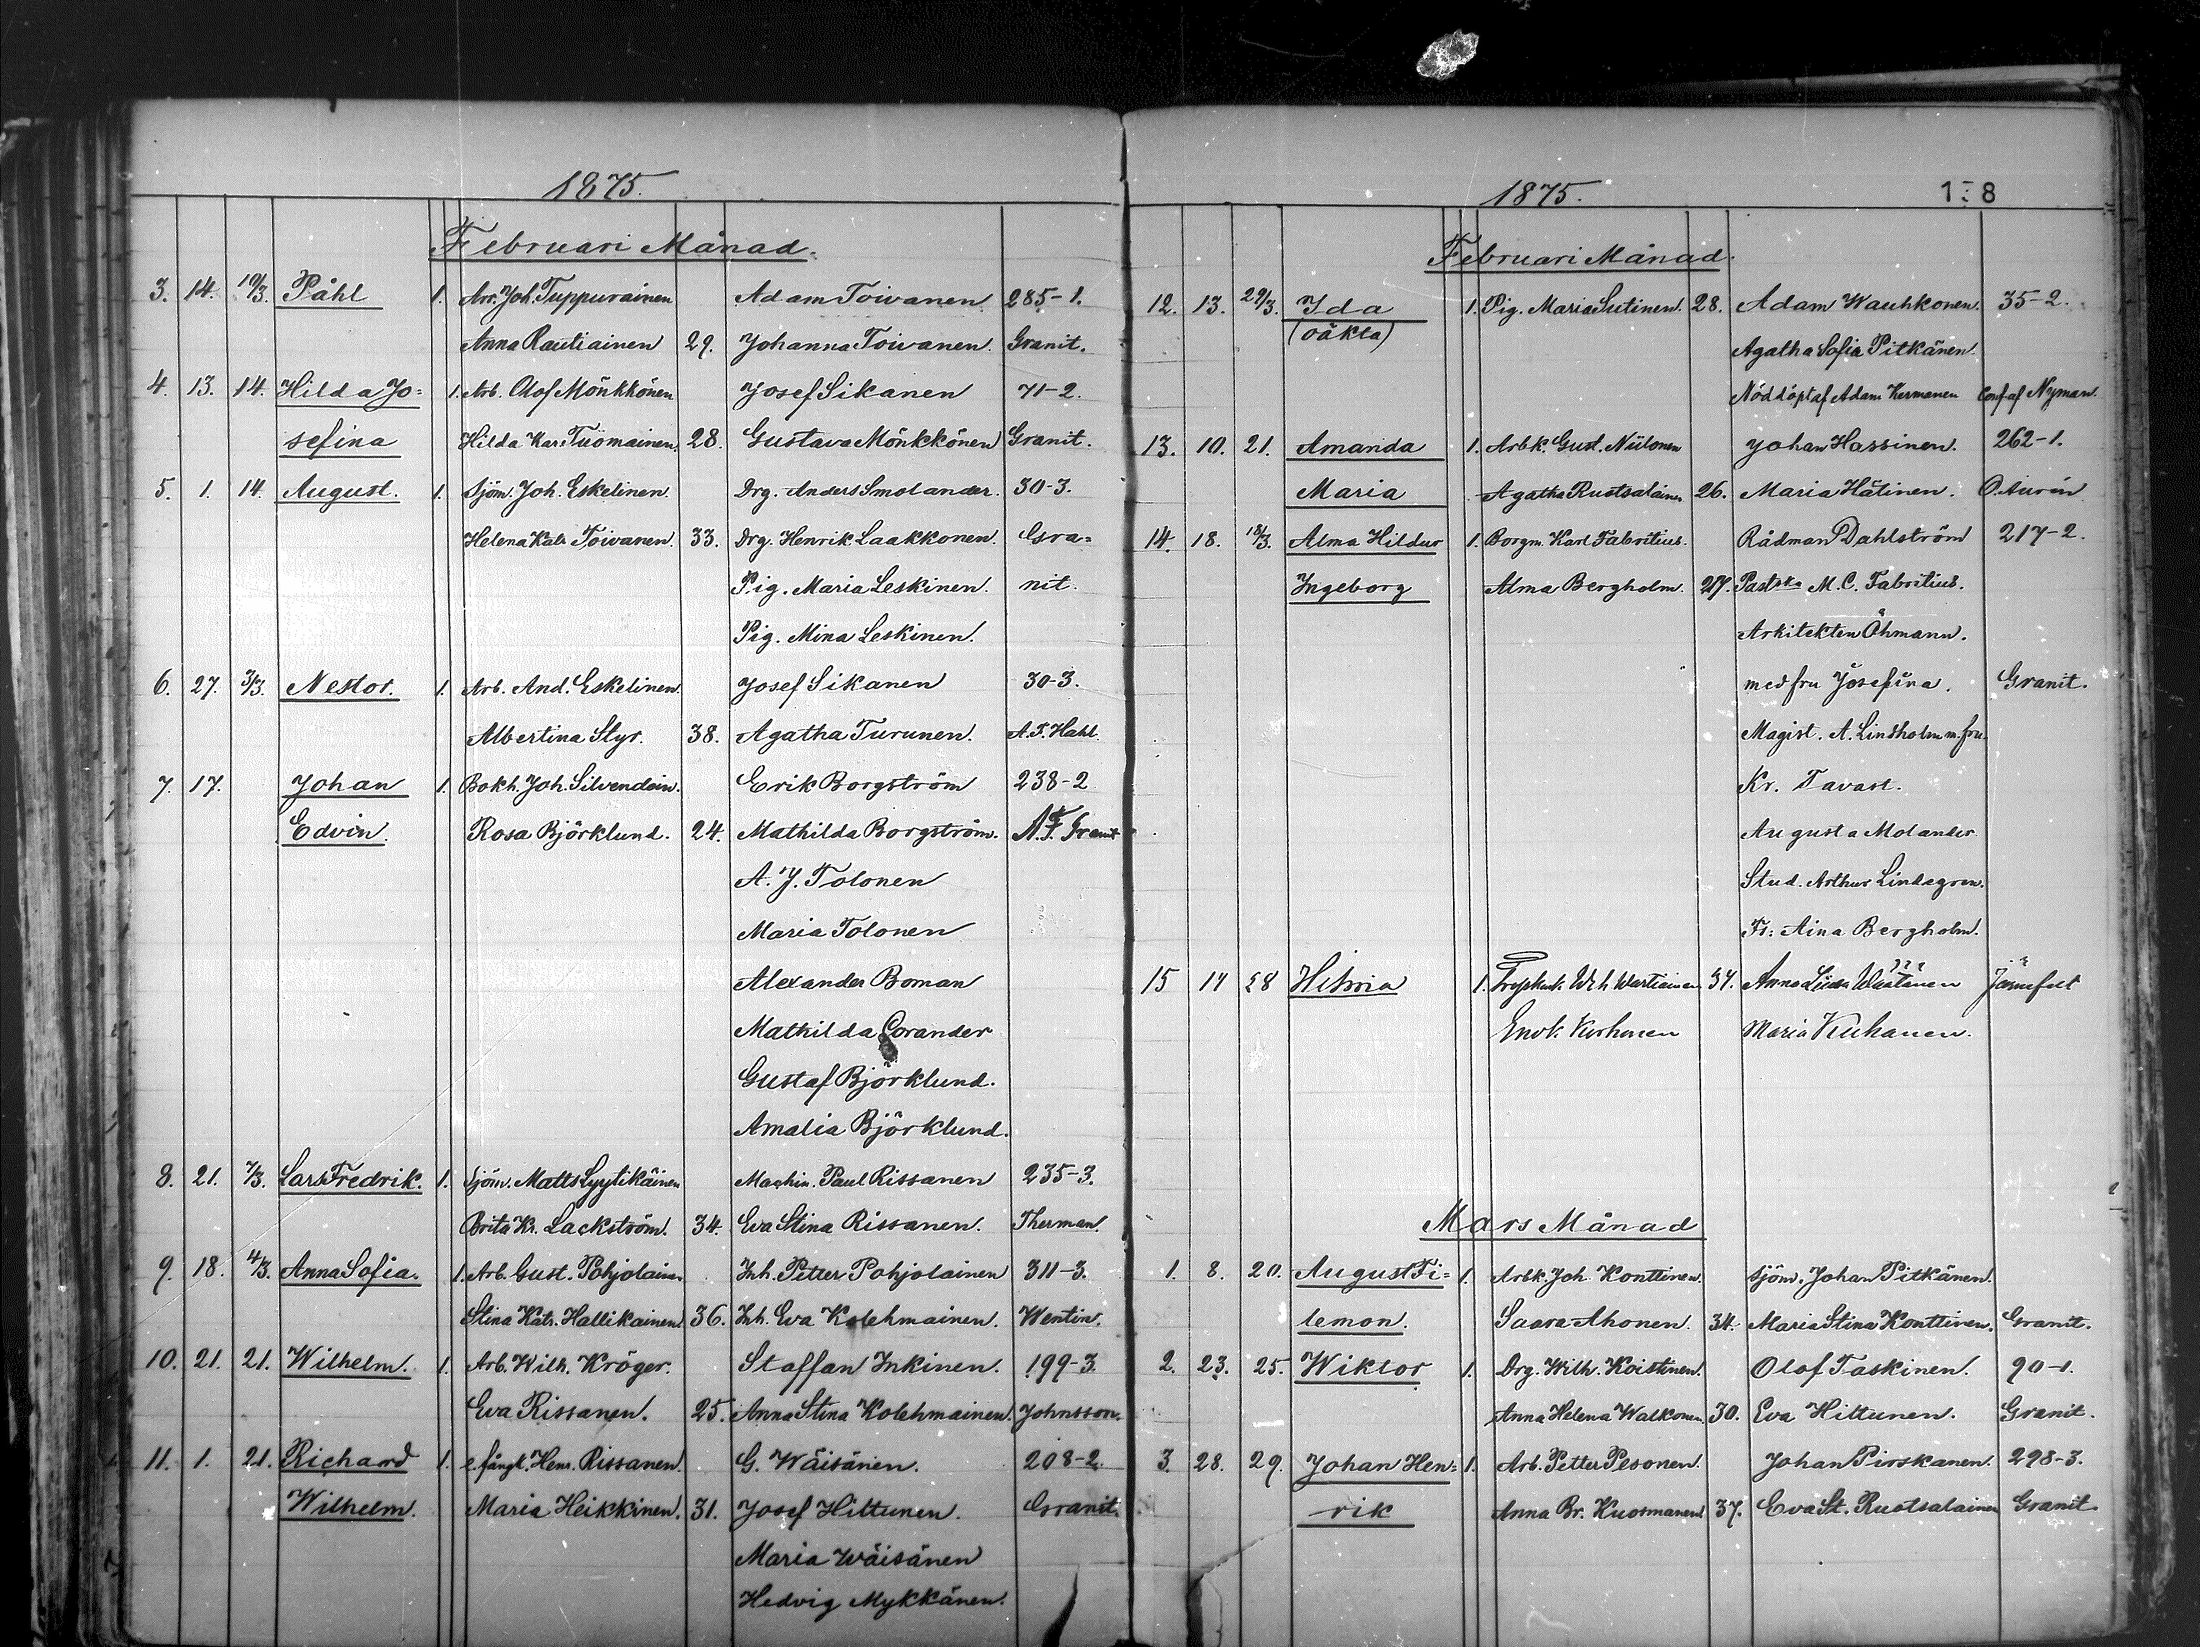 1875.
Februari Månad.
3. 14. 10/3. Påhl 1. Arr. Joh. Tuppurainen Adam Toivanen 285-1.
Anna Rautiainen 29. Johanna Toivanen. Granit.
4. 13. 14. Hilda Jo= 1. Arb. Olof Mönkkönen Josef Sikanen 71-2.
sefina Hilda Kar. Tuomainen. 28. Gustava Mönkkönen Granit.
5. 1. 14. August. 1. Sjöm. Joh. Eskelinen. Drg. Anders Smolander. 30-3.
Helena Katr. Toivanen. 33. Drg. Henrik Laakkonen. Gra=
Pig. Maria Leskinen. nit.
Pig. Mina Leskinen.
6. 27. 3/3. Nestor. 1. Arb. And. Eskelinen. Josef Sikanen 30-3.
Albertina Styr. 38. Agatha Turunen. A.F. Hahl.
7. 17. Johan 1. Bokh. Joh. Silvendoin. Erik Borgström 238-2
Edvin. Rosa Björklund. 24. Mathilda Borgström. A.F. Granit
A. J. Tolonen
Maria Tolonen
Alexander Boman
Mathilda Corander
Gustaf Björklund.
Amalia Björklund.
8. 21. 7/3. Lars Fredrik. 1. Sjöm. Matts Lyytikäinen Machin. Paul Rissanen 235-3.
Brita Kr. Lackström. 34. Eva Stina Rissanen. Therman.
9. 18. 4/3. Anna Sofia. 1. Arb. Gust. Pohjolain. Inh. Petter Pohjolainen 311-3.
Stina Katr. Hallikainen. 36. Inh. Eva Kolehmainen. Wentin.
10. 21. 21. Wilhelm. 1. Arb. Wilh. Kröger. Staffan Inkinen. 199-3.
Eva Rissanen. 25. Anna Stina Kolehmainen. Johnsson.
11. 1. 21. Richard 1. e. fångt. Henr. Rissanen. G. Wäisänen. 208-2
Wilhelm. Maria Heikkinen. 31. Josef Hiltunen. Granit.
Maria Wäisänen
Hedvig Mykkänen.
1875. 8
Februari Månad.
12. 13. 29/3. Ida 1. Pig. Maria Sutinen. 28. Adam Wauhkonen. 35-2.
(oäkta) Agatha Sofia Pitkänen.
Nöddöpt af Adam Kermanen Conf. af Nyman.
13. 10. 21. Amanda 1. Arbk. Gust. Niilonen Johan Hassinen. 262-1.
Maria Agatha Ruotsalainen 26. Maria Hätinen. O. Aurén
14. 18. 18/3. Alma Hildur 1. Borgm. Karl Fabritius. Rådman Dahlström 217-2.
Ingeborg Alma Bergholm. 27. Pastska M. C. Fabritius.
Arkitekten Öhmann.
med fru Josefina. Granit.
Magist. A. Lindholm m. fru.
Kr. Tavast.
Augusta Molander
Stud. Arthur Lindegren.
Fr: Aina Bergholm.
15 14 28 Hilma 1. Wilh Wartiainen 34. Anna Liisa Järnefelt
Korhonen Maria
Mars Månad
1. 8. 20. August Fi= 1. Arbk. Joh. Konttinen. Sjöm. Johan Pitkänen.
lemon. Saara Ahonen. 34. Maria Stina Konttinen. Granit.
2. 23. 25. Wiktor 1. Drg. Wilh. Koistinen. Olof Taskinen. 90-1.
Anna Helena Walkonen. 30. Eva Hiltunen. Granit.
3. 28. 29. Johan Hen= 1. Arb. Petter Pesonen. Johan Pirskanen. 298-3.
rik Anna Br. Kuosmanen. 37. Eva St. Ruotsalainen Granit.